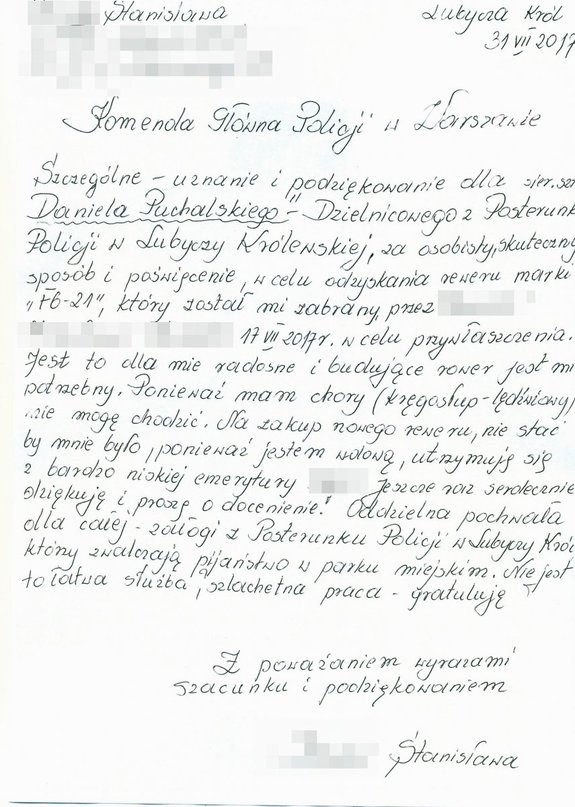 Stanisława
Lubycza Król
31 VII 2017
Komenda Główna Policji w Warszawie
Szczególne - uznanie i podziękowanie dla sier.sz
Daniela Puchalskiego" - Dzielnicowego z Posterun
Policji w Lubyczy Królewskiej, za osobisty, skuteczny
sposób i poświęcenie, w celu odzyskania roweru marki
"F6-21", który został mi zabrany, przez
17 VII 2017r. w celu przywłaszczenia.
Jest to dla mie radosne i budujące rower jest mi
potrzebny. Ponieważ mam chory (kręgosłup-lędźwiowy)
nie mogę chodzić. Na zakup nowego roweru, nie stać
by mnie było, ponieważ jestem wdową, utrzymuję się
z bardzo niskiej emerytury Jeszcze raz serdecznie
dziękuję i proszę o docenienie! Oddzielna pochwała
dla całej - załogi z Posterunku Policji w Lubyczy Król
który zwalczają pijaństwo w parku miejskim. Nie jest
to łatwa służba, szlachetna praca - gratuluję
Z poważaniem wyrazami
szacunku i podziękowaniem
Stanisława